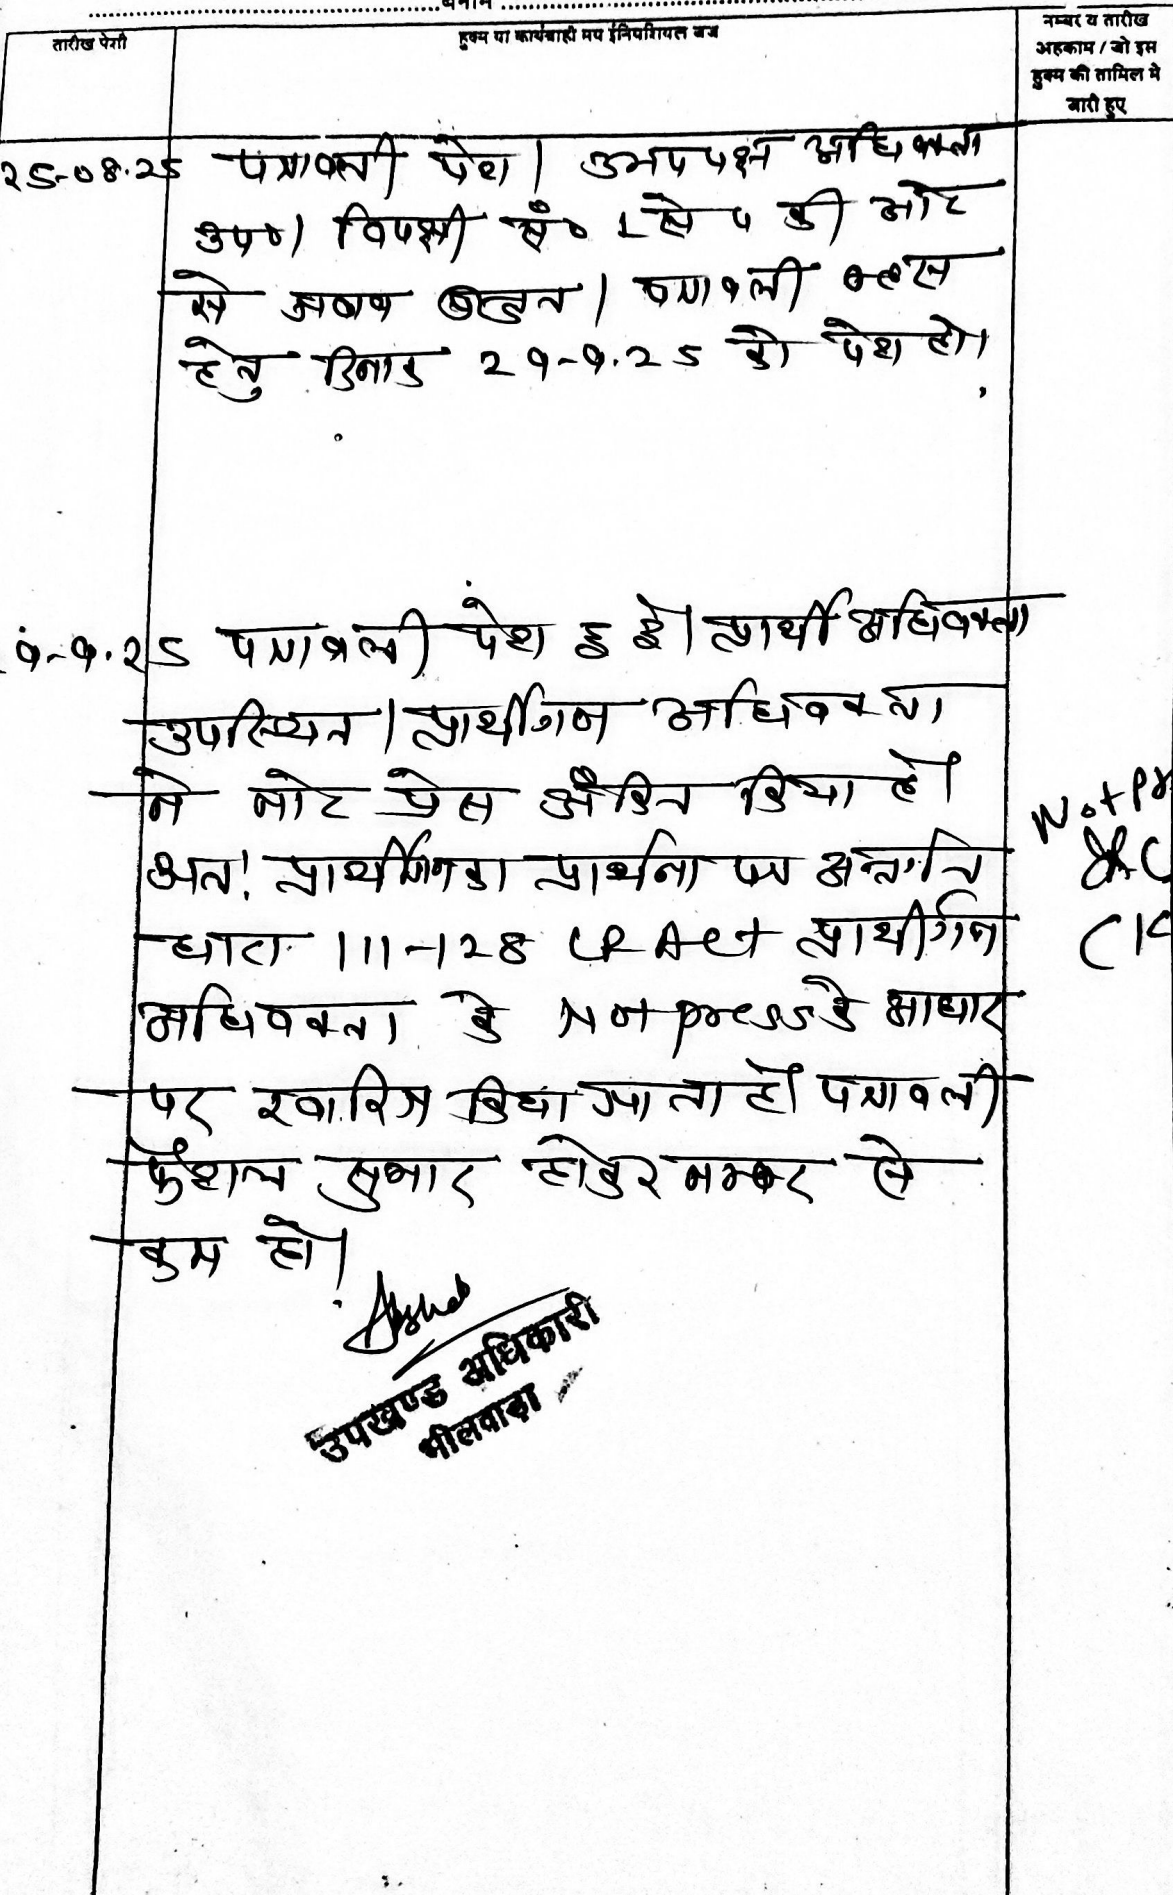 बनाम
तारीख पेशी
हुक्म या कार्यवाही मय इनिशियल जज
नम्बर व तारीख
अहकाम / जो इस
हुक्म की तामिल मे
जारी हुए
25-08-25 पत्रावली पेश। उभयपक्ष अधिवक्ता
उप०। विपक्षी सं० 1 से 4 की ओर
से जवाब बहस। पत्रावली बहस
हेतु दिनांक 29-9.25 को पेश हो।
9-9.25 पत्रावली पेश हुई। प्रार्थी अधिवक्ता
उपस्थित। प्रार्थीगण अधिवक्ता
ने नोट प्रेस अंकित किया है।
अत: प्रार्थीगण का प्रार्थना पत्र अन्तर्गत
धारा 111-128 LR Act प्रार्थीगण
अधिवक्ता के Not press के आधार
पर खारिज किया जाता है। पत्रावली
फैशल सुमार होकर नम्बर से
कम हो।
Not Pr
उपखण्ड अधिकारी
भीलवाड़ा